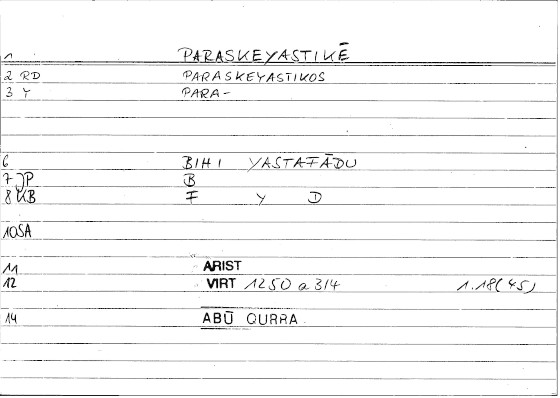 1 PARASKEYASTIKĒ
2 RD PARASKEYASTIKOS
3 Y PARA-
6 BIHI YASTAFĀDU
7 JP B
8 KB F Y D
10SA
11 ARIST
12 VIRT 1250 a 3/4 1.18(45)
14 ABŪ QURRA